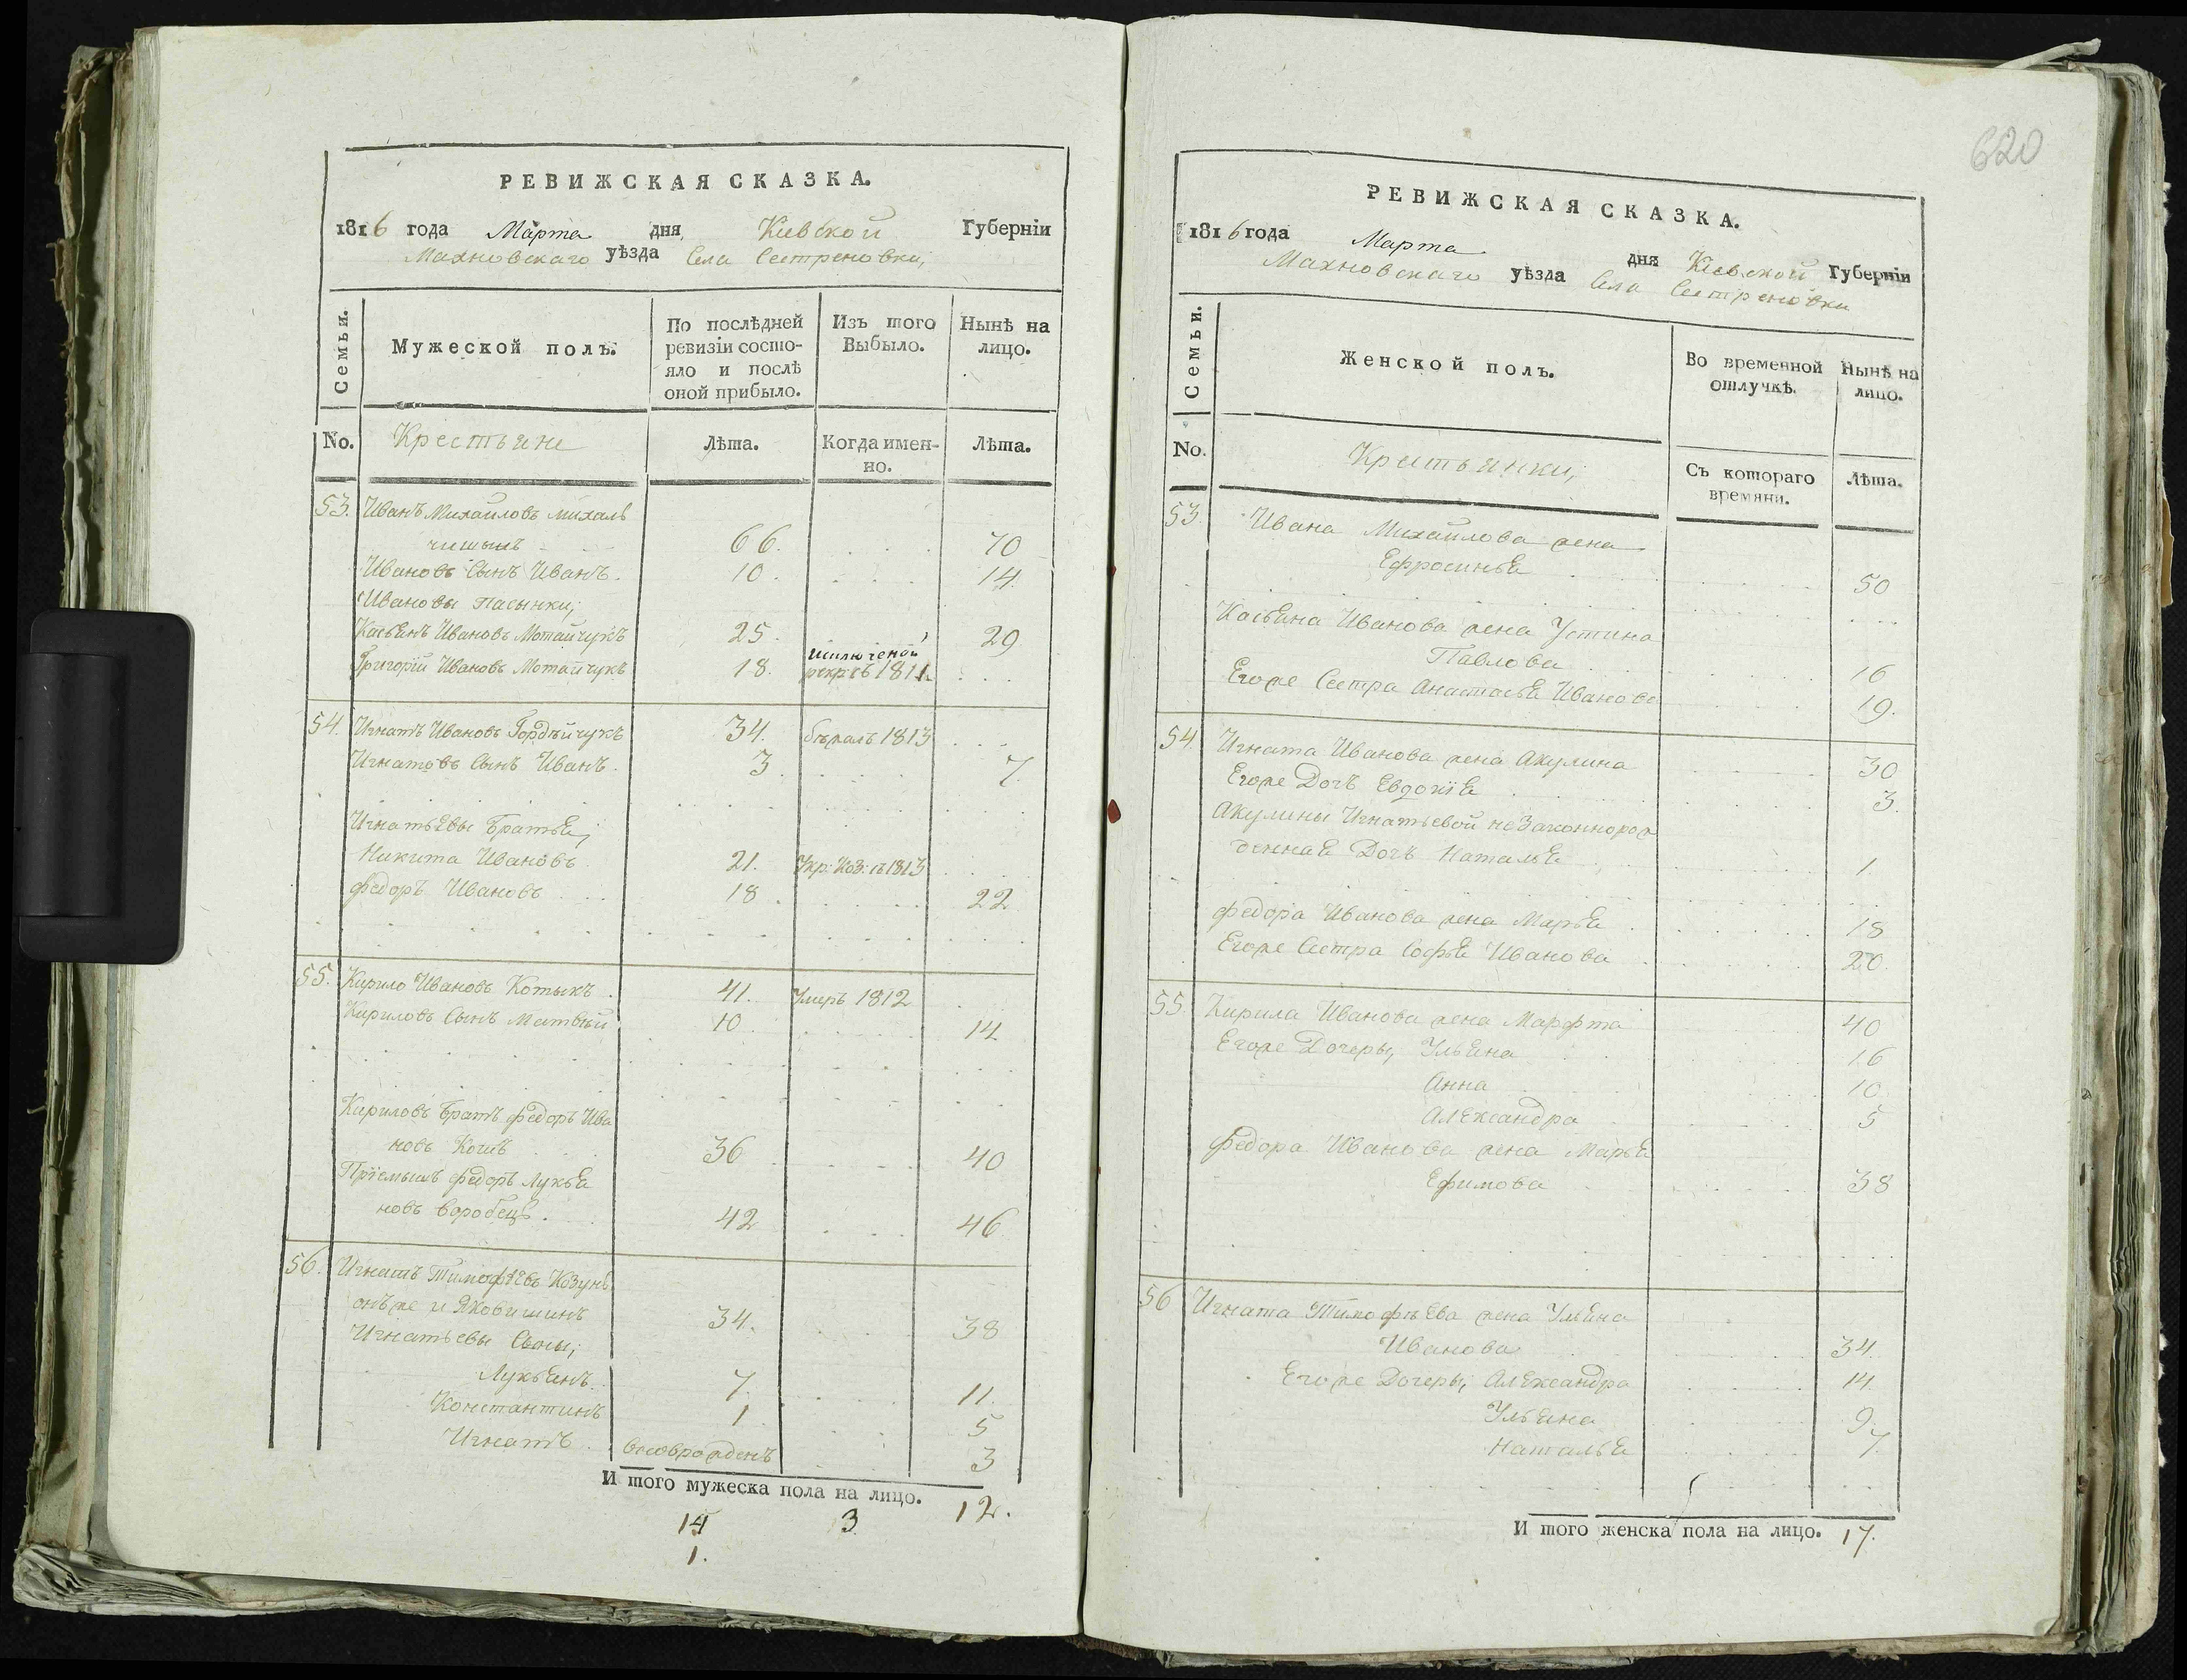 РЕВИЖСКАЯ СКАЗКА.
1816 года Марта дня, Кіевской Губерніи
Махновскаго уѣзда Села Сестреновки,
Семьи.
Мужеской полъ.
По послѣдней ревизіи состо-
яло и послѣ
оной прибыло.
Изъ того
Выбыло.
Нынѣ на
лицо.
No. Крестьяне Лѣта. Когда имен-
но. Лѣта.
53. Иванъ Михайловъ михаль
чишынъ 66. 70
Ивановъ Сынъ Иванъ. 10. 14.
Ивановы Пасынки;
Касьянъ Ивановъ Мотайчукъ 25. 29
Григорій Ивановъ Мотайчукъ 18. 1811
54. Игнатъ Ивановъ Гордѣйчукъ 34. бѣжалъ 1813
Игнатовъ Сынъ Иванъ. 3. 7.
Игнатьевы братья;
Никита Ивановъ 21. 1813
Федоръ Ивановъ 18. 22
55. Кирило Ивановъ Котыкъ 41. Умеръ 1812
Кириловъ Сынъ Матвѣй 10 14
Кириловъ братъ Федоръ Ива
новъ 36 40
Пріемышъ Федоръ Лукья
новъ воробецъ. 42 46
56. Игнатъ Тимофѣевъ Козунъ
онъ же и Яковишинъ 34. 38
Игнатьевы Сыны;
Лукьянъ 7. 11.
Константинъ 1 5
Игнатъ. 3
И того мужеска пола на лицо. 12.
14 3
1.
620
РЕВИЖСКАЯ СКАЗКА.
1816 года Марта дня Кіевской Губерніи
Махновскаго уѣзда Села Сестреновки
Семьи.
Женской полъ.
Во временной
отлучкѣ.
Нынѣ на
лицо.
No. Крестьянки; Съ котораго
времяни. Лѣта.
53. Ивана Михайлова жена
Ефросинья 50
Касьяна Иванова жена Устина
Павлова 16
Егоже Сестра Анастасья Иванова 19.
54. Игната Иванова жена Акулина 30
Егоже Дочь Евдокія 3.
Акулины Игнатьевой незаконнорож
денная Дочь Наталья 1
Федора Иванова жена Марья 18
Егоже Сестра Софья Иванова 20.
55. Кирила Иванова жена Марфта 40
Егоже Дочеры, Ульяна 16
Анна 10
Александра 5
Федора Иванова жена Марья
Ефимова 38
56 Игната Тимофѣева жена Ульяна
Иванова 34.
Егоже Дочеры; Александра 14.
Ульяна 9.
Наталья 7.
И того женска пола на лицо. 17.